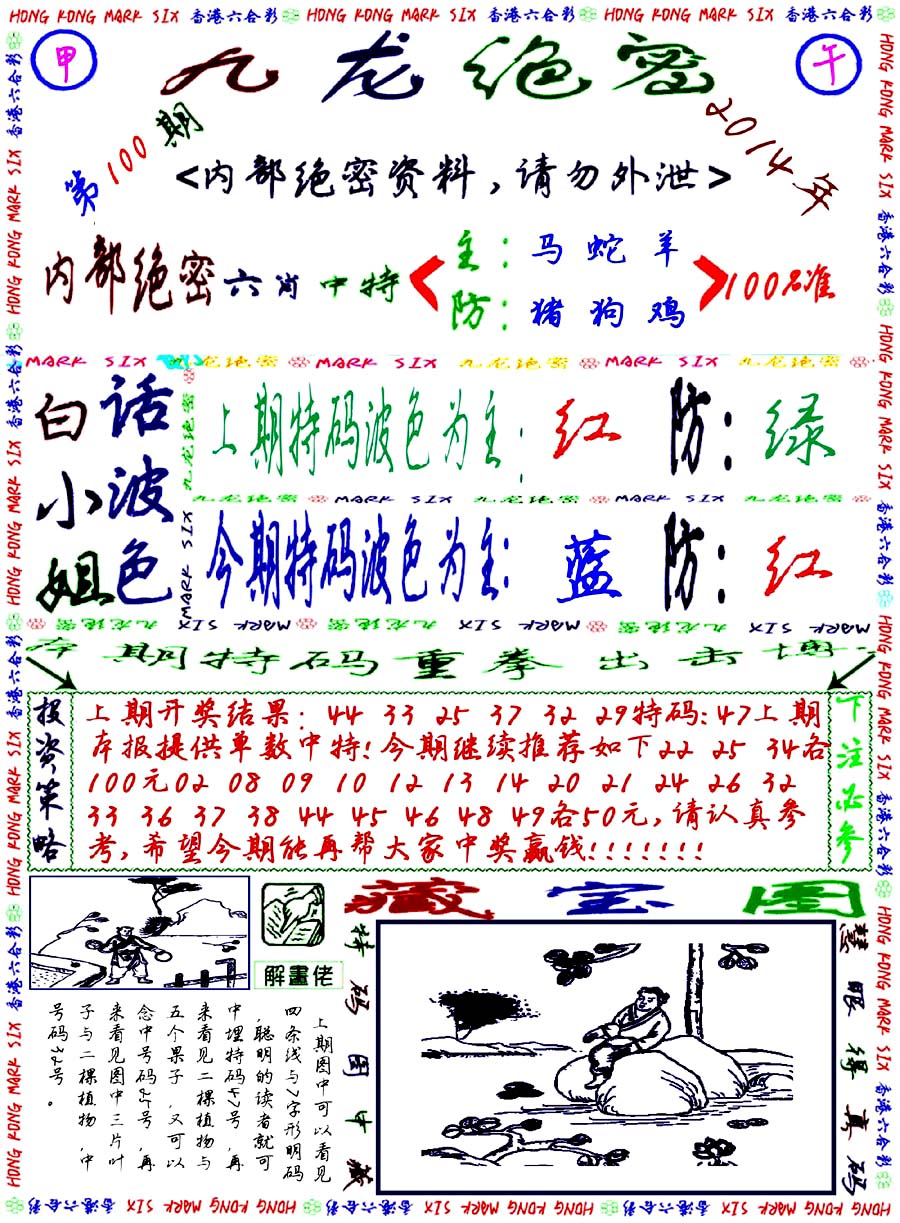 HONG KONG MARK SIX 香港六合彩 HONG KONG MARK SIX 香港六合彩 HONG KONG MARK SIX 香港六合彩
甲
九龙绝密
午
第100期
2014年
<内部绝密资料,请勿外泄>
内部绝密六肖中特
主:马 蛇 羊
防:猪 狗 鸡
100%准
MARK SIX 九龙绝密 MARK SIX 九龙绝密 MARK SIX 九龙绝密
白话
小波
姐色
上期特码波色为主:红 防:绿
九龙绝密 MARK SIX 九龙绝密 MARK SIX 九龙绝密
今期特码波色为主:蓝 防:红
MARK SIX 九龙绝密 MARK SIX 九龙绝密 MARK SIX 九龙绝密
本期特码重拳出击博
投资策略
上期开奖结果:44 33 25 37 32 29特码:47上期
本报提供单数中特!今期继续推荐如下22 25 34各
100元02 08 09 10 12 13 14 20 21 24 26 32
33 36 37 38 44 45 46 48 49各50元,请认真参
考,希望今期能再帮大家中奖赢钱!!!!!!!
下注必参
藏宝图
解畫佬
上期图中可以看见
四条线与7字形明码
,聪明的读者就可
中埋特码47号,再
来看见二棵植物与
五个果子,又可以
念中号码25号,再
来看见图中三片叶
子与二棵植物,中
号码32号。
特码图中藏
慧眼得真码
HONG KONG MARK SIX 香港六合彩 HONG KONG MARK SIX 香港六合彩 HONG KONG MARK SIX 香港六合彩